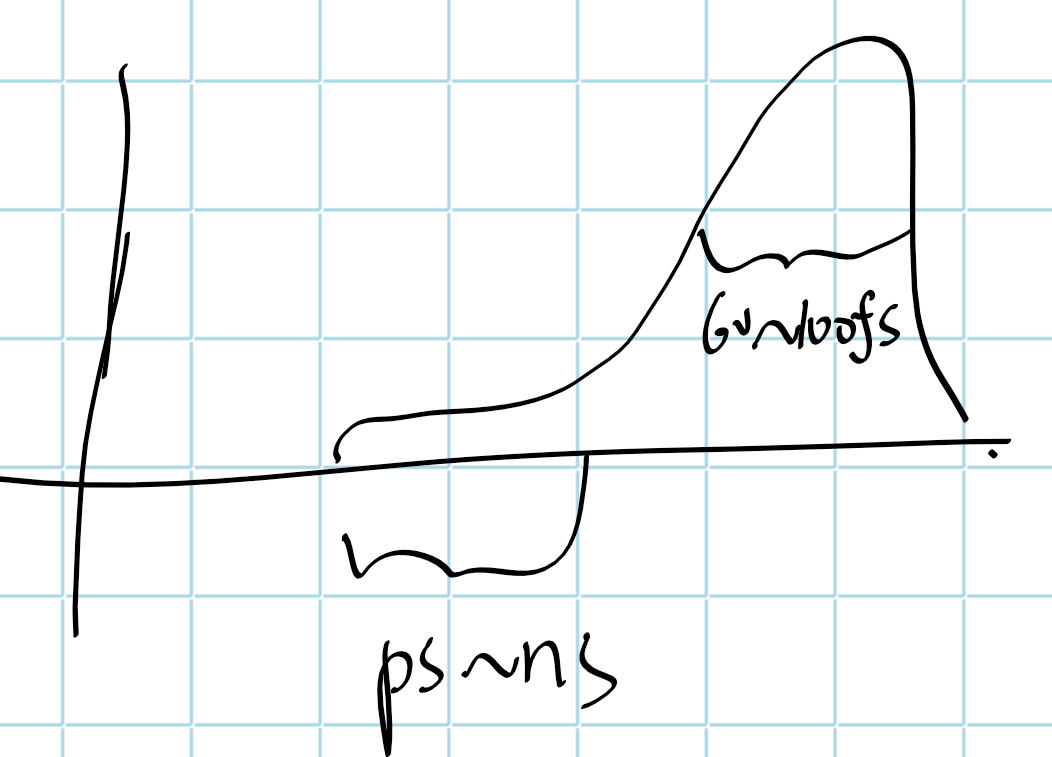 60~100fs
ps~ns